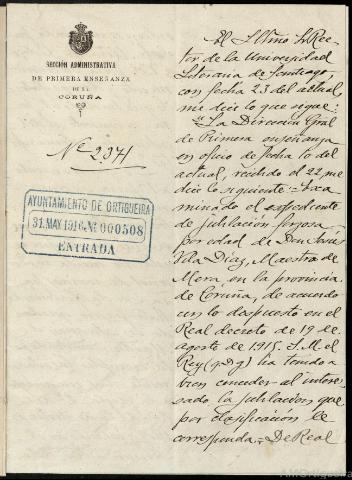 SECCIÓN ADMINISTRATIVA
DE PRIMERA ENSEÑANZA
DE LA
CORUÑA
Nº 2371
AYUNTAMIENTO DE ORTIGUEIRA
31.MAY.1916 Nº 000508
ENTRADA
El Iltmo Sr Rec-
tor de la Universidad
Literaria de Santiago,
con fecha 23 del actual,
me dice lo que sigue:
"La Dirección Gral
de Primera enseñanza
en oficio de fecha 10 del
actual, recibido el 22, me
dice lo siguiente = Exa
minado el expediente
de jubilación forzosa
por edad de Don Jesús
Vila Diaz, Maestro de
Mera, en la provincia
de Coruña, de acuerdo
con lo dispuesto en el
Real decreto de 19 de
agosto de 1915. S. M. el
Rey (q D g) ha tenido a
bien conceder al intere-
sado la jubilación que
por clasificación le
corresponda = De Real